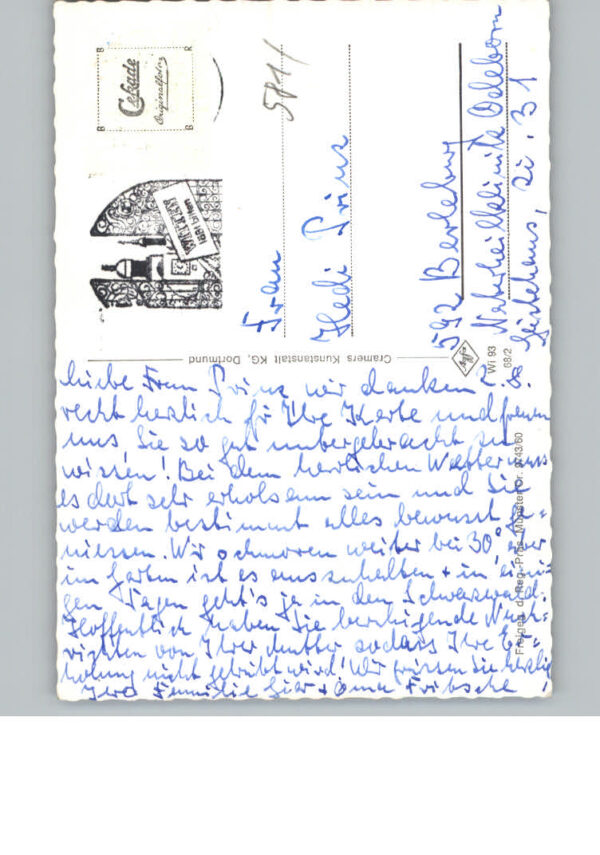 Cekade
Originalfoto
5811
Frau
Hedi Prinz
592 Berleburg
Naturheilklinik Odeborn
Gästehaus, Zi. 31
Cramers Kunstanstalt KG, Dortmund
Wi 93
68/2
Freigeg. d. Reg.-Präs. Münster Nr. 9743/60
Liebe Frau Prinz wir danken
recht herzlich für Ihre Karte und freuen
uns Sie so gut untergebracht zu
wissen! Bei dem herrlichen Wetter muss
es dort sehr erholsam sein und Sie
werden bestimmt alles bewusst ge-
niessen. Wir schmoren weiter bei 30°, aber
im Garten ist es auszuhalten + in eini-
gen Tagen geht's ja in den Schwarzwald.
Hoffentlich haben Sie beruhigende Nach-
richten von Ihrer Mutter sodass Ihre Er-
holung nicht getrübt wird! Wir grüssen Sie herzlich
Ihre Familie + Oma Fritsche